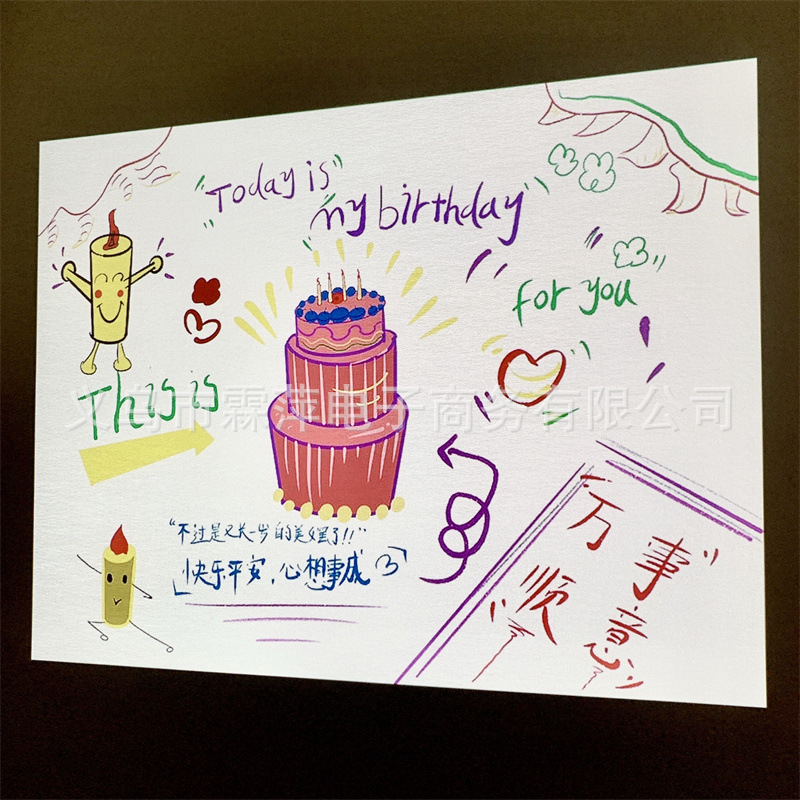 "Today is"
my birthday
for you
This is
义乌市霖萍电子商务有限公司
"不过是又长一岁的美好罢了!!"
快乐平安,心想事成
万事
顺意